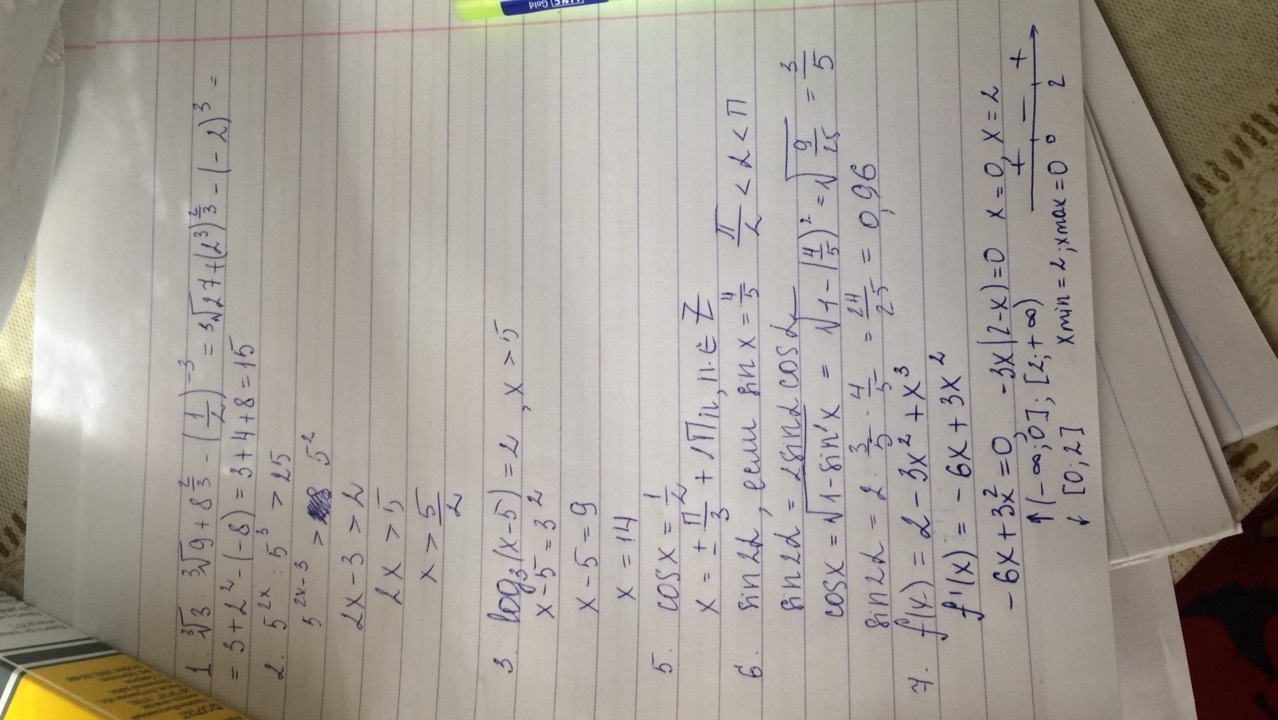 1. ∛3 · ∛9 + 8^(2/3) - (1/2)^-3 = ∛27 + (2³)^(2/3) - (-2)³ =
= 3 + 2² - (-8) = 3 + 4 + 8 = 15
2. 5^2x : 5³ > 25
5^2x-3 > 5²
2x - 3 > 2
2x > 5
x > 5/2
3. log₃(x-5) = 2, x > 5
x-5 = 3²
x-5 = 9
x = 14
5. cosx = 1/2
x = ± π/3 + 2πn, n ∈ Z
6. sin2α, если sinx = 4/5 π/2 < α < π
sin2α = 2sinα cosα
cosx = √(1-sin²x) = √(1-(4/5)²) = √(9/25) = 3/5
sin2α = 2 · 3/5 · 4/5 = 24/25 = 0,96
7. f(x) = 2 - 3x² + x³
f'(x) = -6x + 3x²
-6x + 3x² = 0 -3x(2-x) = 0 x = 0, x = 2
↑ (-∞; 0]; [2; +∞) + - +
↓ [0; 2] xmin = 2; xmax = 0 0 2
Gold